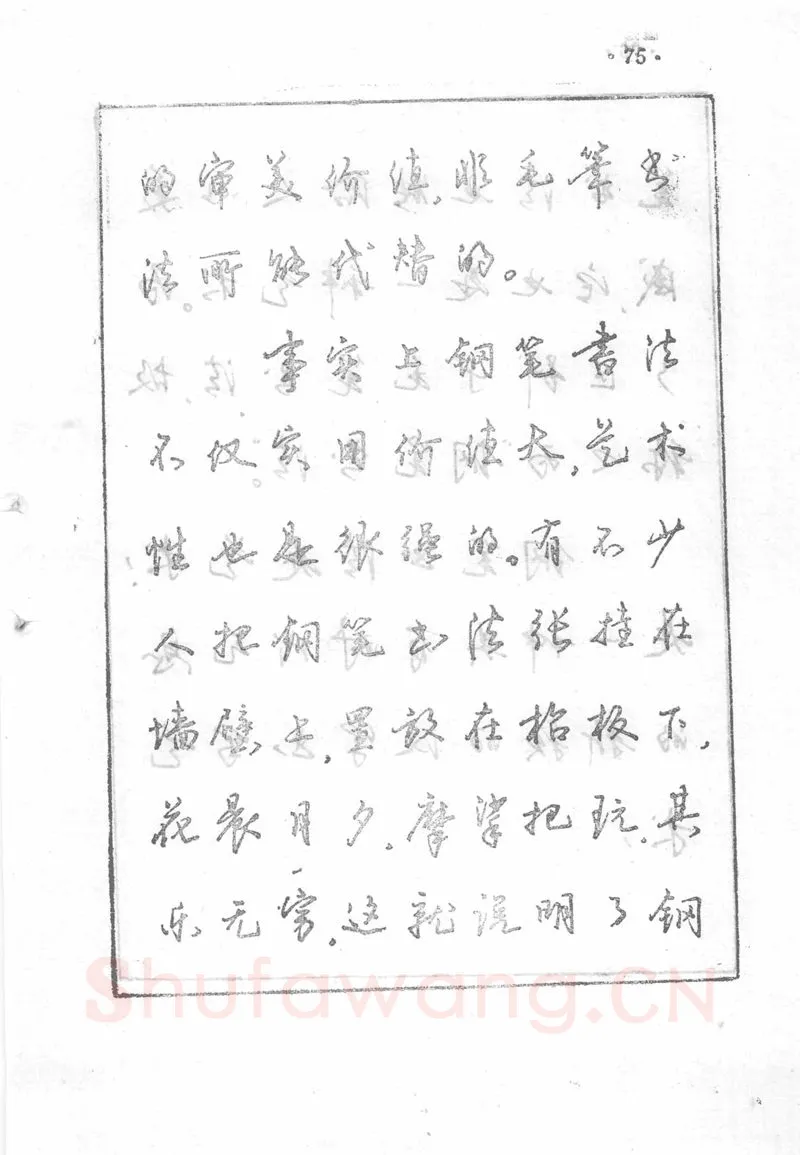 ·75·
的审美价值，非毛笔书
法所能代替的。
事实上钢笔书法
不仅实用价值大，艺术
性也是很强的。有不少
人把钢笔书法张挂在
墙壁上，置放在枱板下，
花晨月夕，摩挲把玩，其
乐无穷。这就说明了钢
Shufawang.CN